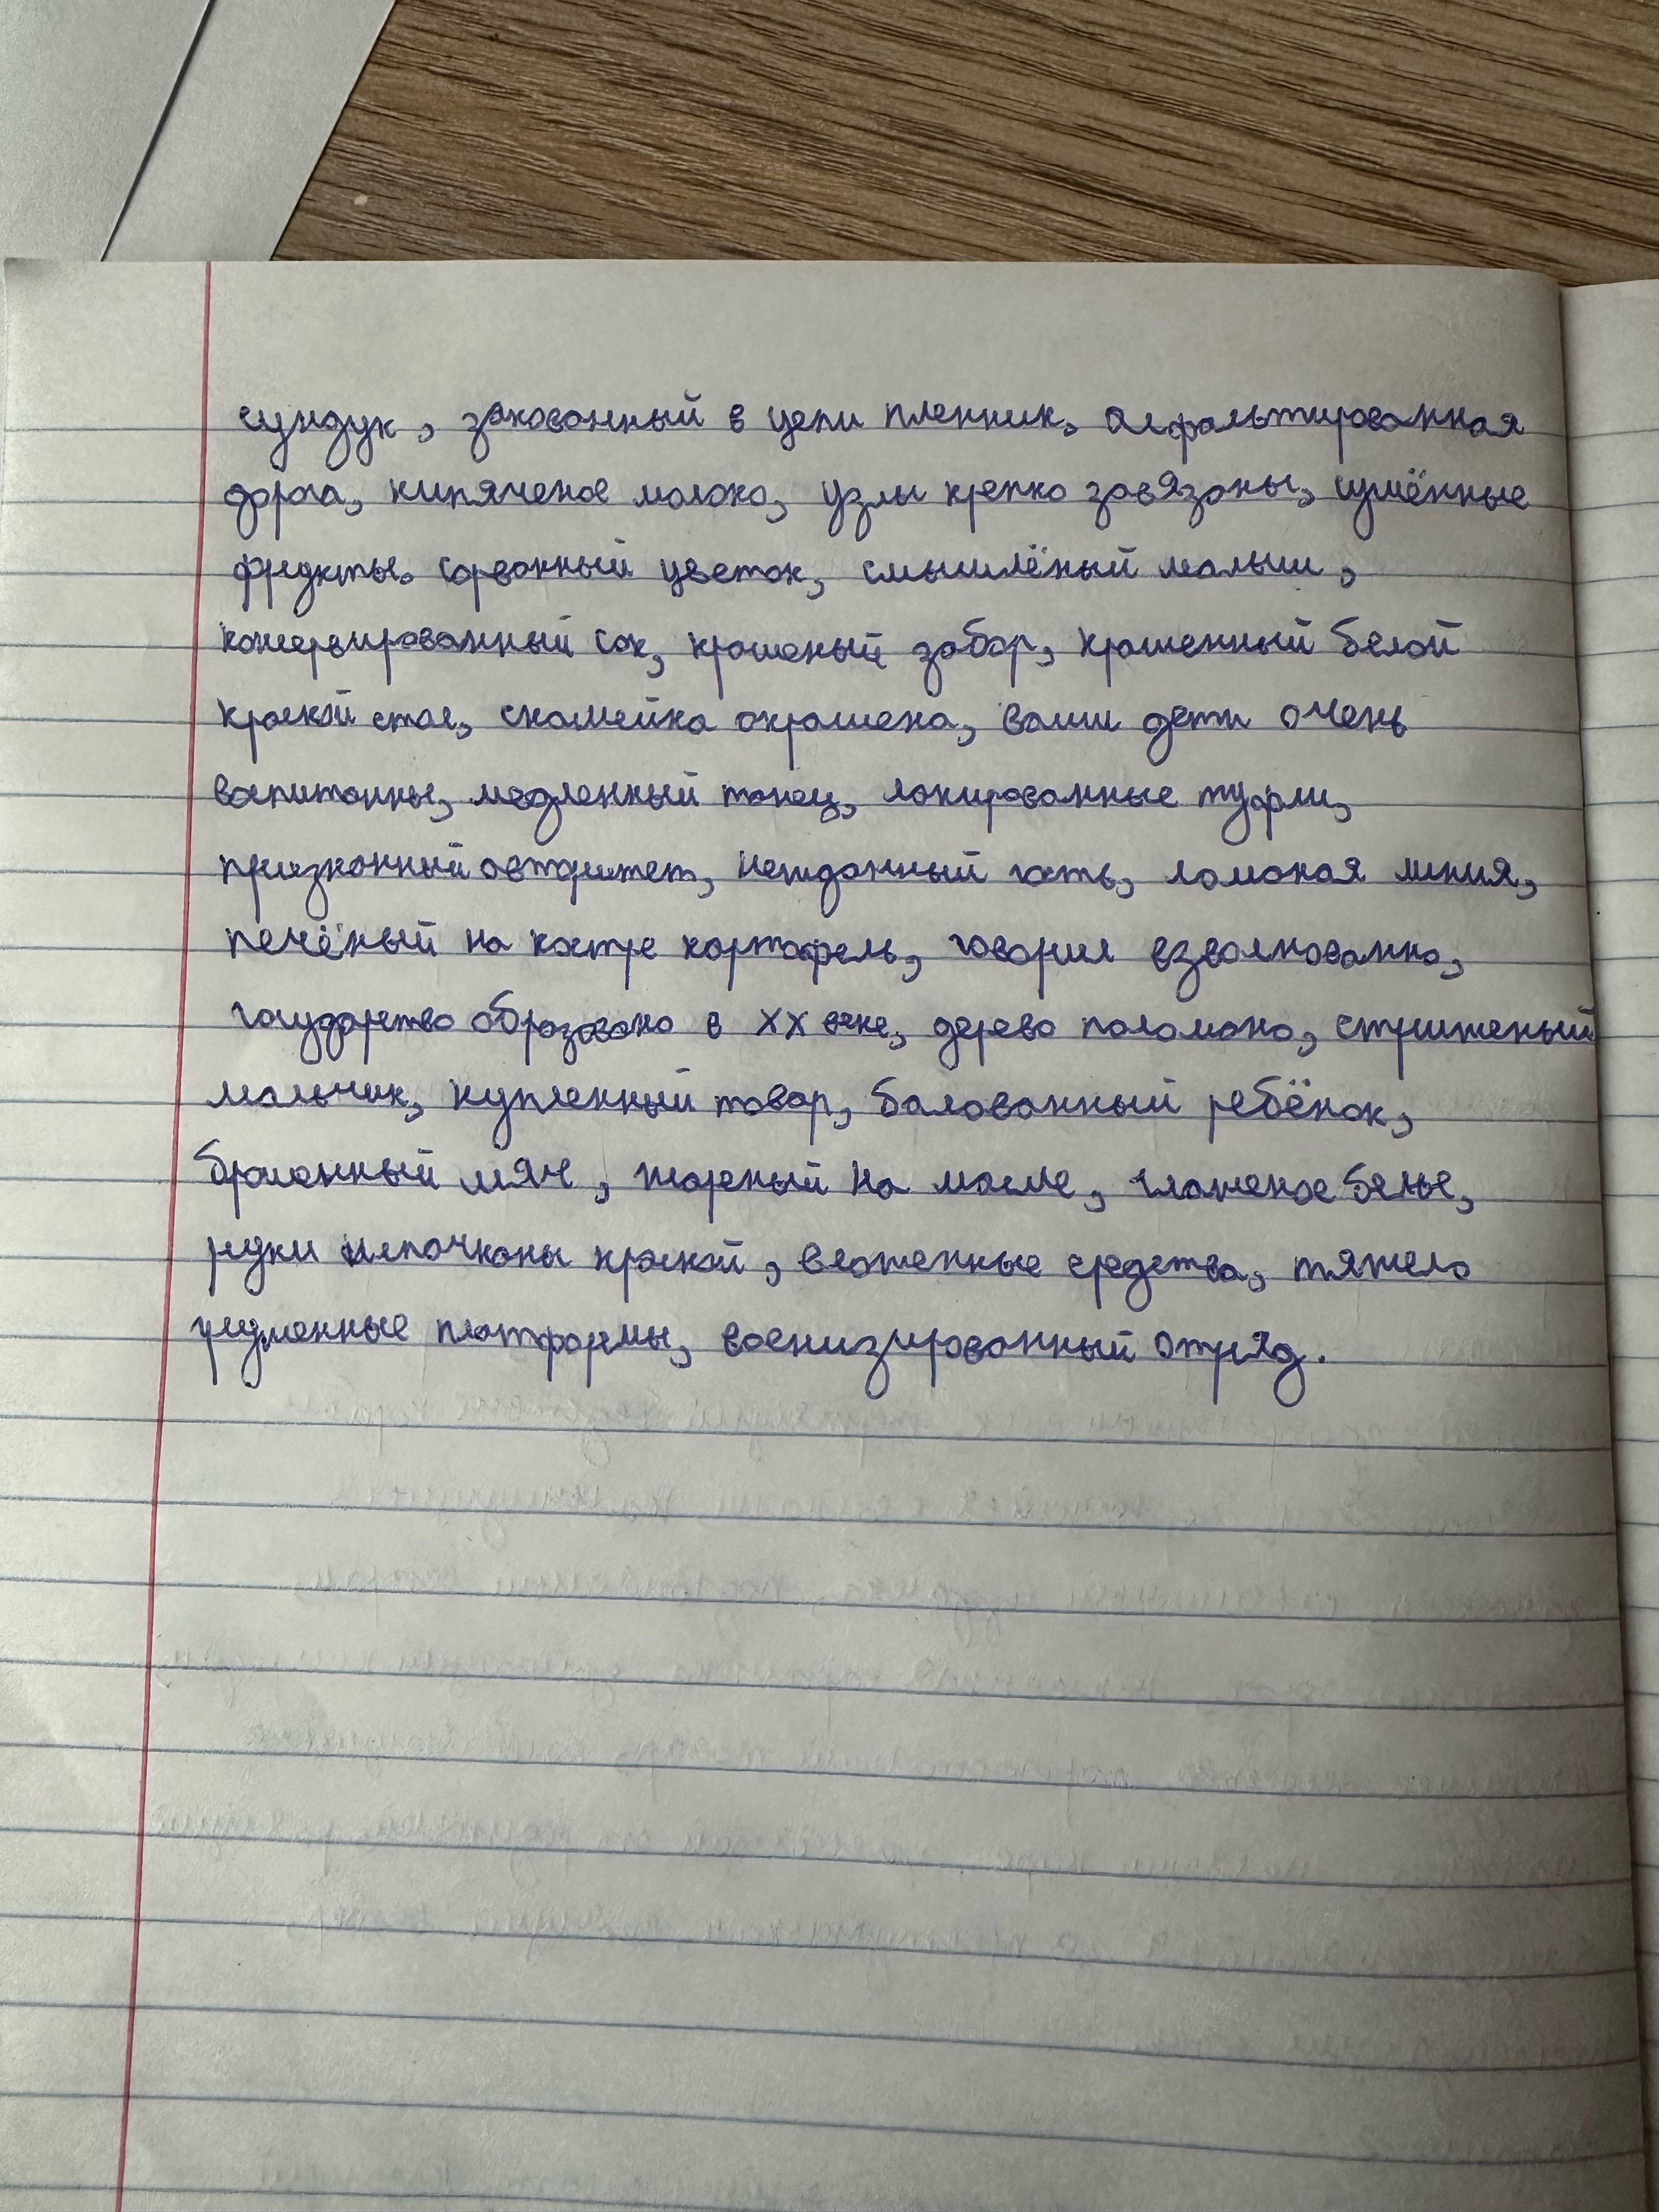 сундук, закованный в цепи пленник, асфальтированная
дорога, кипяченое молоко, узлы крепко завязаны, сушённые
фрукты, сорванный цветок, смышлёный малыш,
консервированный сок, крашеный забор, крашенный белой
краской стол, скамейка окрашена, ваши дети очень
воспитанны, медленный танец, лакированные туфли,
признанный авторитет, нежданный гость, ломаная линия,
печёный на костре картофель, говорил взволнованно,
государство образовано в XX веке, дерево поломано, стриженый
мальчик, купленный товар, балованный ребёнок,
брошенный мяч, жареный на масле, глаженое белье,
руки испачканы краской, вложенные средства, тяжело
груженные платформы, военизированный отряд.